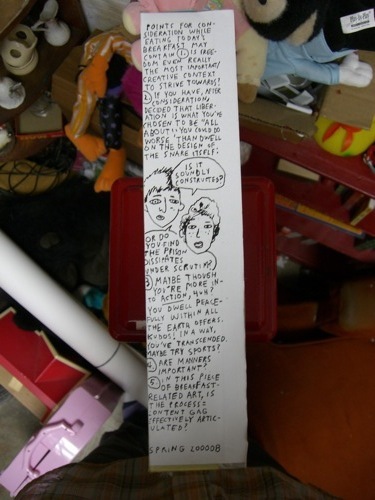 POINTS FOR CON-
SIDERATION WHILE
EATING TODAY'S
BREAKFAST MAY
CONTAIN: ① IS FREE-
DOM EVEN REALLY
THE MOST IMPORTANT/
CREATIVE CONTEXT
TO STRIVE TOWARDS?
② IF YOU HAVE, AFTER
CONSIDERATION,
DECIDED THAT LIBER-
ATION IS WHAT YOU'RE
CHOSEN TO BE "ALL
ABOUT": YOU COULD DO
WORSE THAN DWELL
ON THE DESIGN OF
THE SNARE ITSELF:
IS IT
SOUNDLY
CONSTRUCTED?
OR DO
YOU FIND
THE PRISON
DISSIPATES
UNDER SCRUTINY?
③ MAYBE THOUGH
YOU'RE MORE IN-
TO ACTION, HUH?
YOU DWELL PEACE-
FULLY WITHIN ALL
THE EARTH OFFERS.
KUDOS! IN A WAY,
YOU'VE TRANSCENDED.
MAYBE TRY SPORTS?
④ ARE MANNERS
IMPORTANT?
⑤ IN THIS PIECE
OF BREAKFAST-
RELATED ART, IS
THE PROCESS=
CONTENT GAG
EFFECTIVELY ARTIC-
ULATED?
SPRING 200008